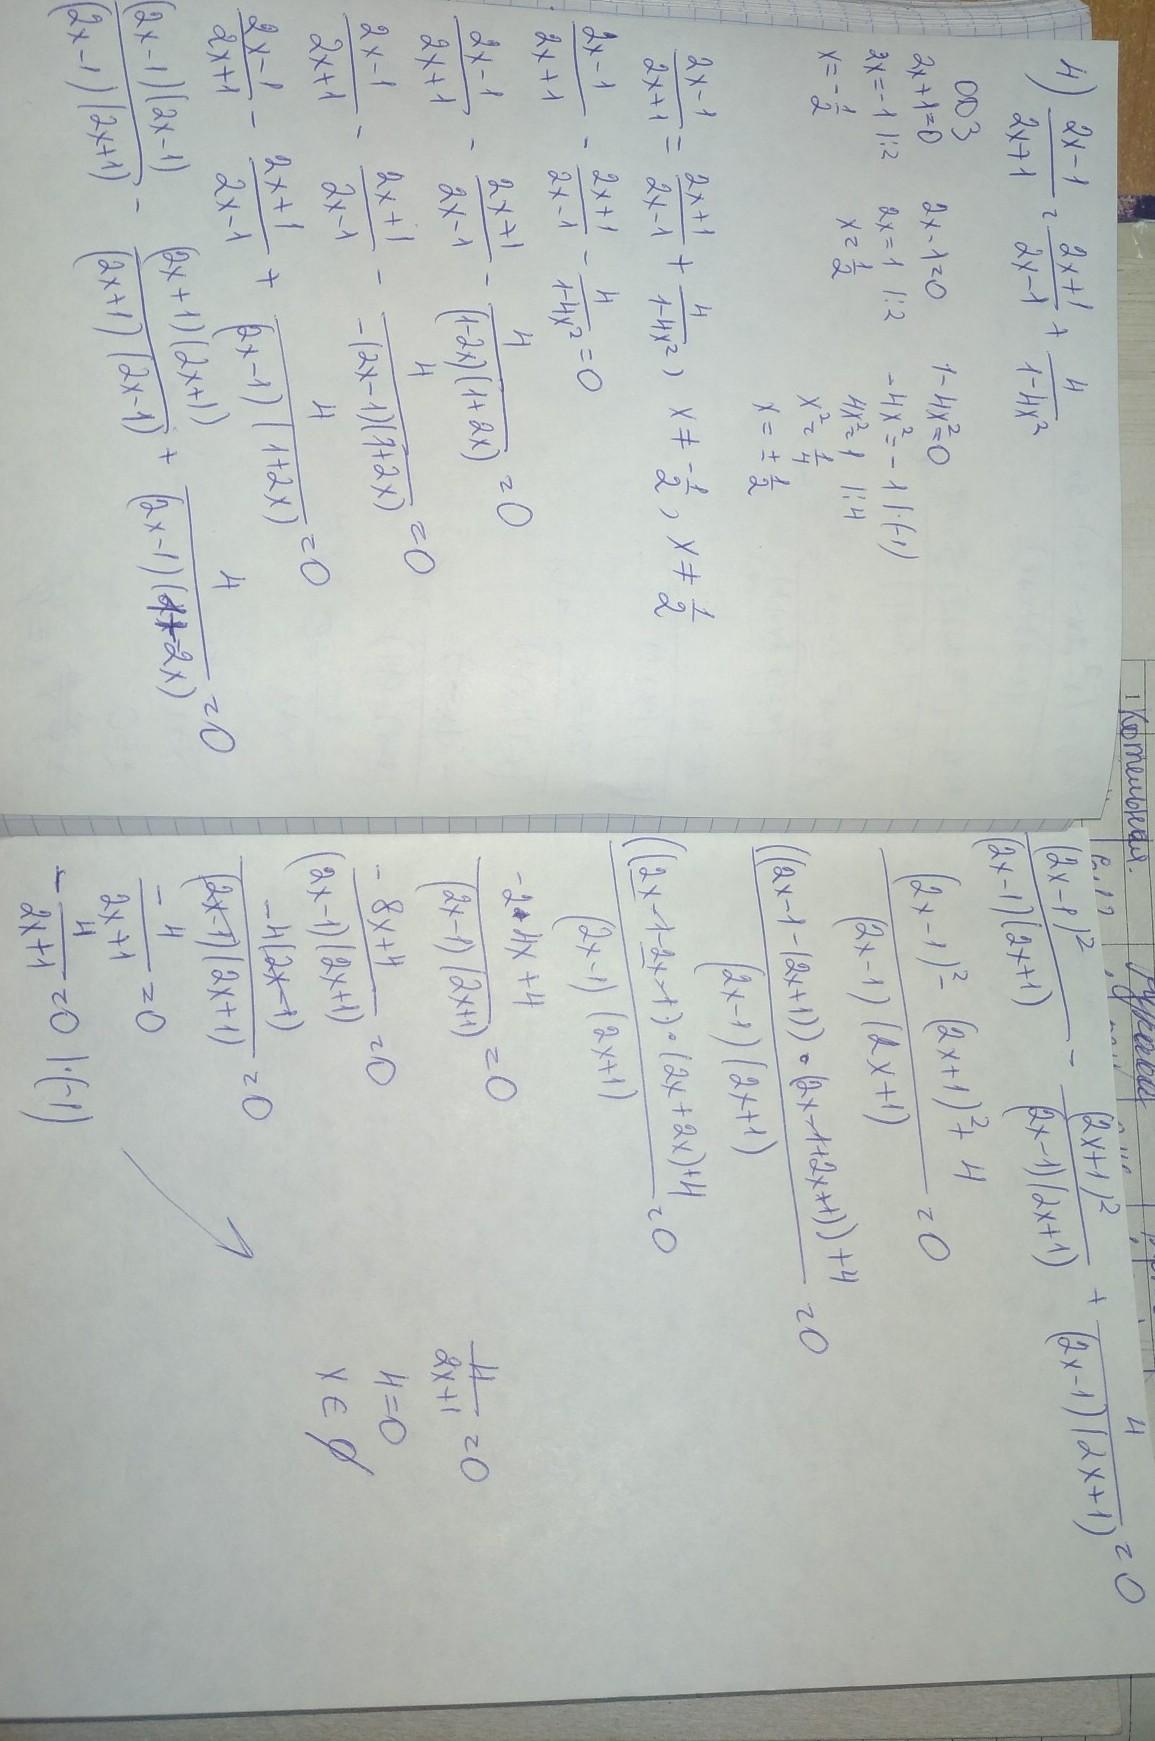 4) (2x-1)/(2x+1) = (2x+1)/(2x-1) + 4/(1-4x²)
ОДЗ
2x+1=0 2x-1=0 1-4x²=0
2x=-1 |:2 2x=1 |:2 -4x²=-1 |·(-1)
x=-1/2 x=1/2 4x²=1 |:4
x²=1/4
x=±1/2
(2x-1)/(2x+1) = (2x+1)/(2x-1) + 4/(1-4x²), x≠-1/2, x≠1/2
(2x-1)/(2x+1) - (2x+1)/(2x-1) - 4/(1-4x²) = 0
(2x-1)/(2x+1) - (2x+1)/(2x-1) - 4/((1-2x)(1+2x)) = 0
(2x-1)/(2x+1) - (2x+1)/(2x-1) - 4/(-(2x-1)(1+2x)) = 0
(2x-1)/(2x+1) - (2x+1)/(2x-1) + 4/((2x-1)(1+2x)) = 0
((2x-1)(2x-1))/((2x-1)(2x+1)) - ((2x+1)(2x+1))/((2x+1)(2x-1)) + 4/((2x-1)(1+2x)) = 0
(2x-1)²/((2x-1)(2x+1)) - (2x+1)²/((2x-1)(2x+1)) + 4/((2x-1)(2x+1)) = 0
((2x-1)²-(2x+1)²+4)/((2x-1)(2x+1)) = 0
((2x-1-(2x+1))·(2x-1+2x+1))+4/((2x-1)(2x+1)) = 0
((2x-1-2x-1)·(2x+2x)+4/((2x-1)(2x+1)) = 0
(-2·4x+4)/((2x-1)(2x+1)) = 0
(-8x+4)/((2x-1)(2x+1)) = 0
(-4(2x-1))/((2x-1)(2x+1)) = 0
-4/(2x+1) = 0
-4/(2x+1) = 0 |·(-1)
4/(2x+1) = 0
4=0
x∈∅
1 Котельная.